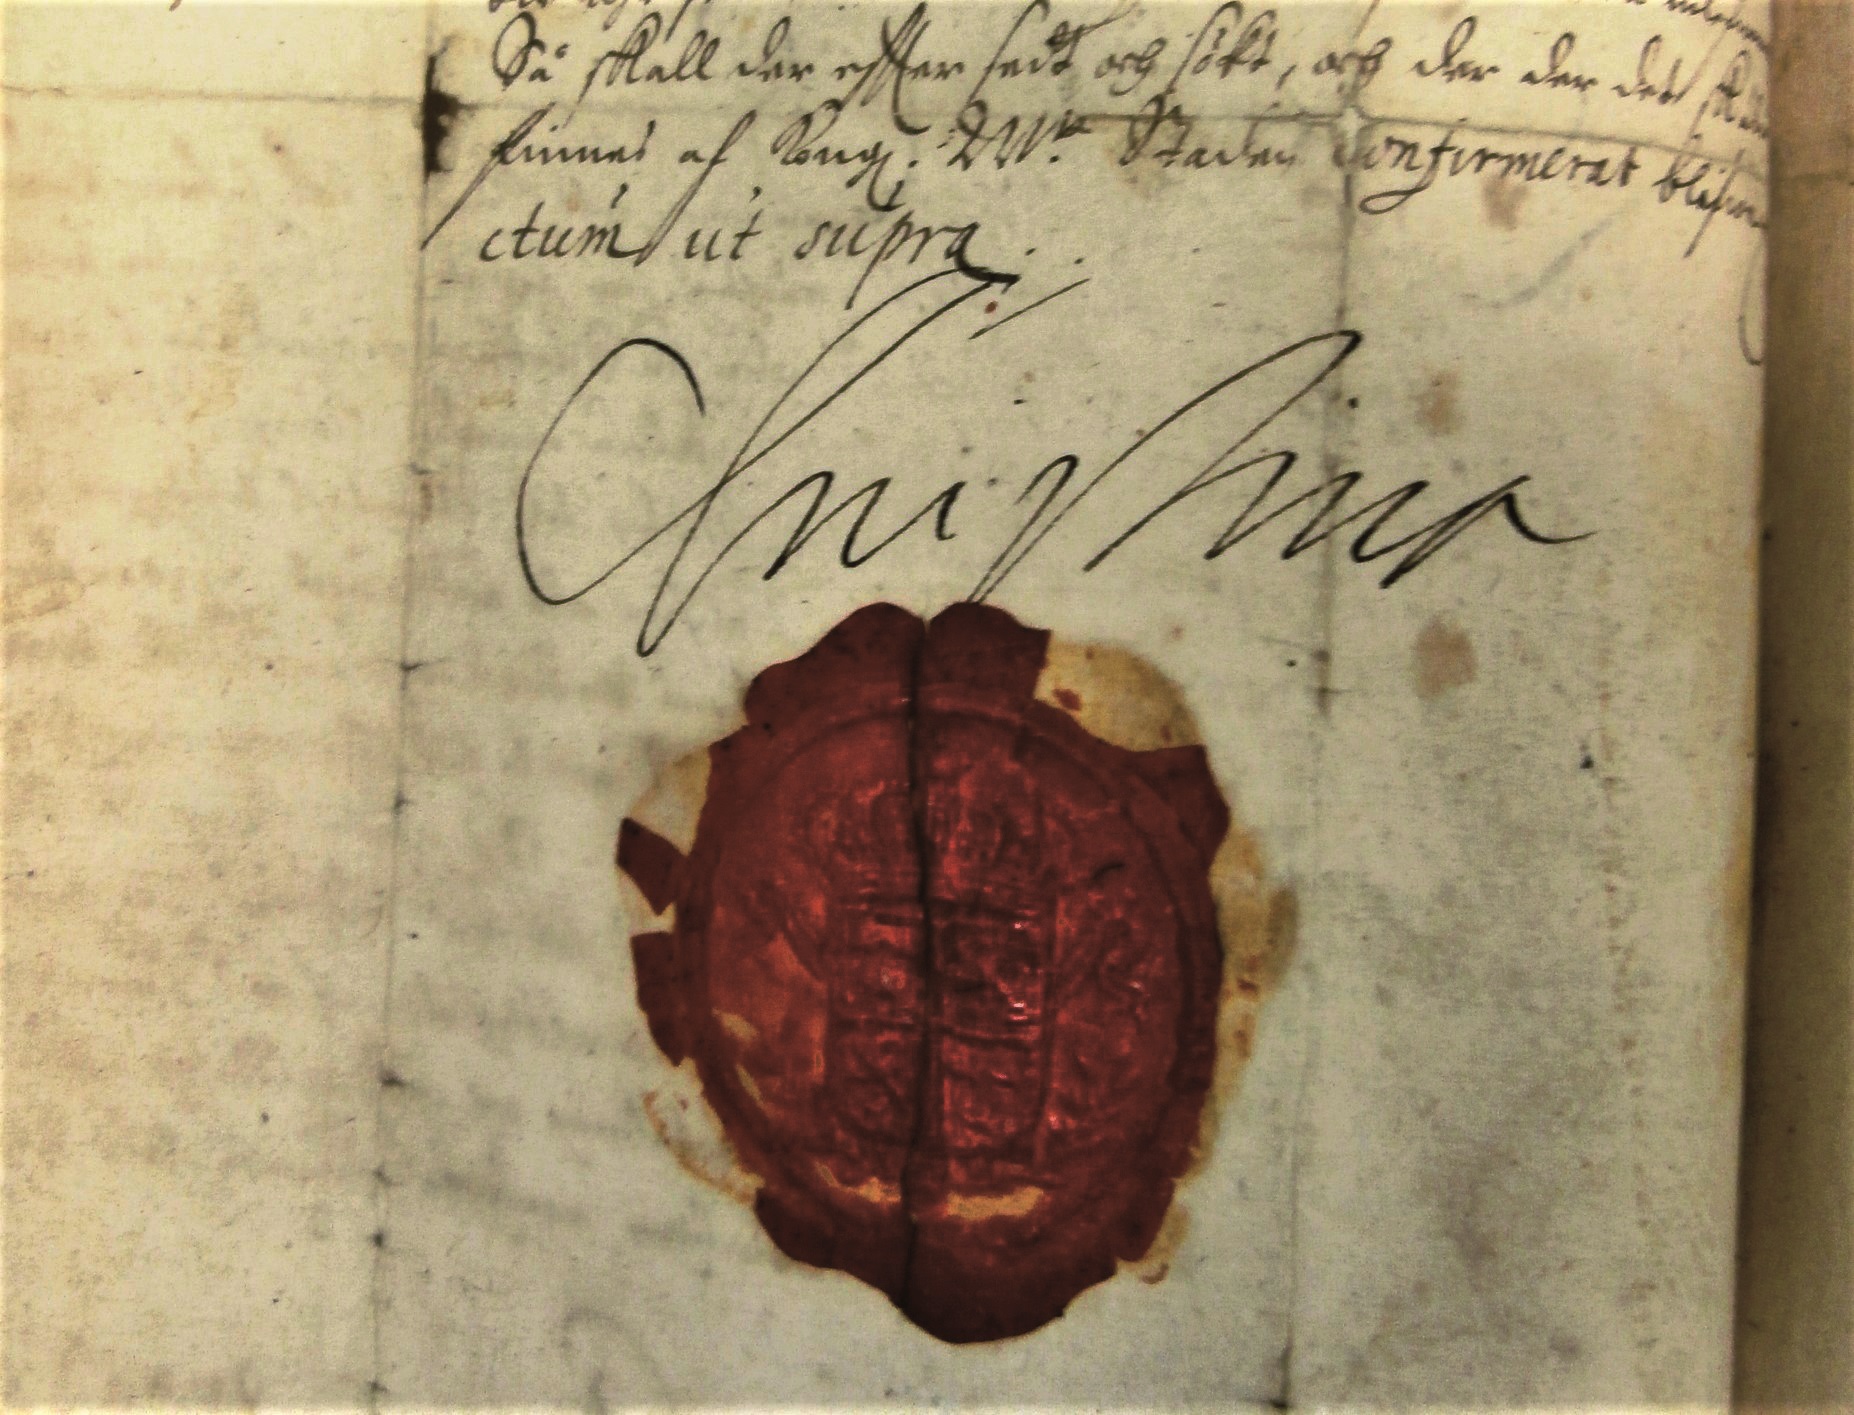 Så skall der effter sedt och sökt, och der der det
finnes af Kongl. Staden Confirmerat
ctum ut supra
Christina